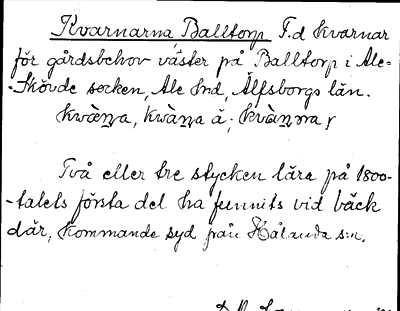 Kvarnarna Balltorp F.d kvarnar
för gårdsbehov väster på Balltorp i Ale-
-Skövde socken, Ale hrd, Älfsborgs län.
Två eller tre stycken lära på 1800-
-talets första del ha funnits vid bäck
där, kommande syd från Hålanda s:n.